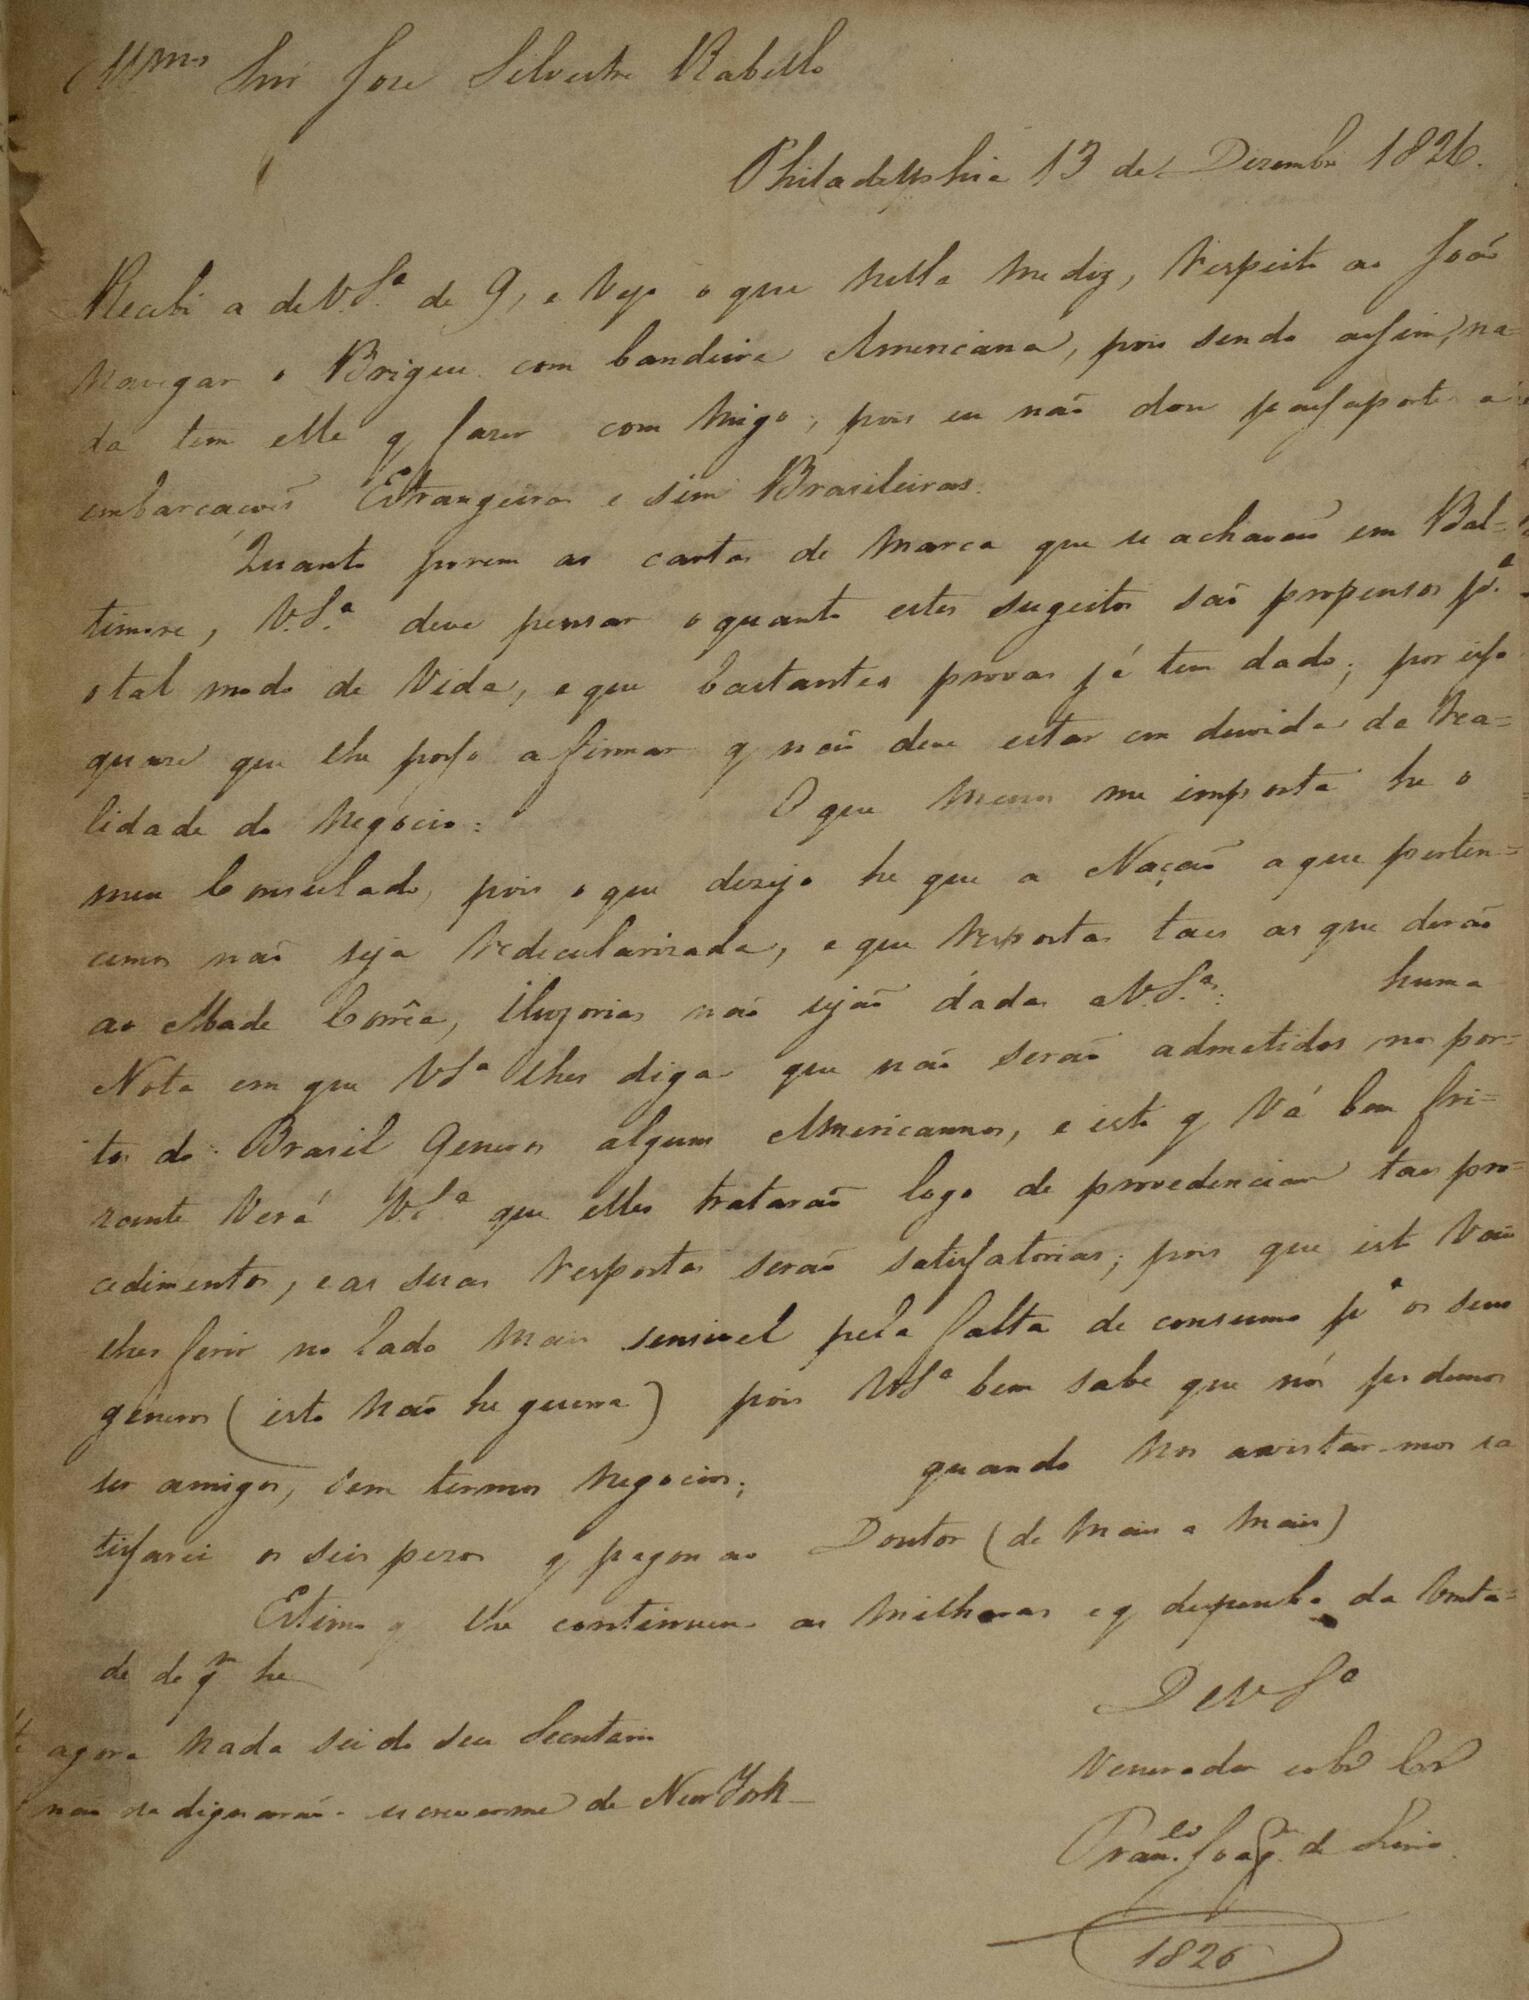 Illmo Snr Jose Silvestre Rabello
Philadelphia 13 de Dezembro 1826.
Recebi a de V.Sª de 9, e vejo o que nella me diz, respeito ao João
navegar o Brigue com bandeira Americana, pois sendo assim, na-
da tem elle q fazer com migo, pois eu não dou passaportes a
embarcacoẽs Estrangeiras e sim Brasileiras.
Quanto porem as cartas de marca que se achavaõ em Bal=
timore, V.Sª deve pensar o quanto estes sugeitos saõ propensos pª
o tal modo de vida, e que bastantes provas já tem dado; por isso
quase que lhe posso afirmar q naõ deve estar em duvida da rea=
lidade do negocio: O que menos me importa he o
meu Consulado, pois o que dezejo he que a Naçaõ a que perten=
cemos naõ seja redecularizada, e que respostas taes as que deraõ
ao Abade Corrêa, illuzorias naõ sejaõ dadas a V.Sª: huma
Nota em que VSª lhes diga que naõ seraõ admetidos nos por=
tos do Brasil Generos alguns Americannos, e isto q vá bem fri=
zante verá V.Sª que elles trataraõ logo de providenciar taes pro=
cedimentos, e as suas respostas seraõ satisfatorias; pois que isto vai
lhes ferir no lado mais sensivel pela falta de consumo pª os seus
géneros (isto naõ he guerra) pois VSª bem sabe que nós podemos
ser amigos, sem termos negocios; quando nos avistar-mos sa
tisfarei os seis pezos q pagou ao Doutor (de mais a mais)
Estimo q lhe continuem as milhoras e q desponha da vonta=
de de qm he
De V Sª
Venerador e obrº Crº
Franco Joaqm de Lima
1826
agora nada sei do seu Secretario
naõ se dignaraõ escreverme de New York